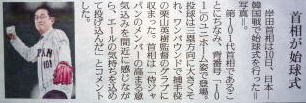 首相が始球式
岸田首相は10日、日本―
韓国戦で始球式を行った＝
写真＝。
第101代首相であるこ
とにちなみ、背番号「10
1」のユニホーム姿で登場。
投球は三塁方向に大きくそ
れ、ワンバウンドで捕手役
の栗山英樹監督のグラブに
収まった。首相は「侍ジャ
パンのメンバーの高まる意
気込みを間近に感じなが
ら、エールの気持ちを込め
て投げ込んだ」とコメント
した。
PAN
101